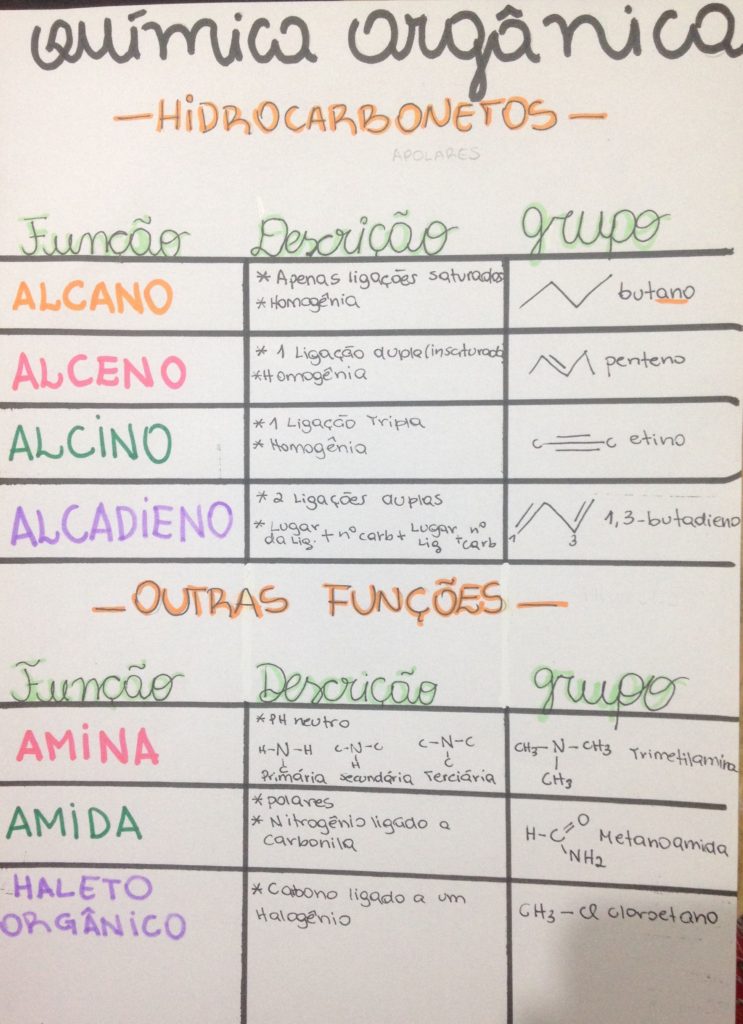 QUÍMICA ORGÂNICA
—HIDROCARBONETOS—
APOLARES
Função Descrição grupo
ALCANO
* Apenas ligações saturadas
* Homogênia
butano
ALCENO
* 1 Ligação dupla (insaturada)
* Homogênia
penteno
ALCINO
* 1 Ligação Tripla
* Homogênia
C C etino
ALCADIENO
* 2 Ligações duplas
* Lugar da Lig. + nº carb + Lugar Lig + nº carb
1 3 1,3-butadieno
— OUTRAS FUNÇÕES —
Função Descrição grupo
AMINA
* PH neutro
H-N-H C-N-C C-N-C
C H C
Primária secundária Terciária
CH3-N-CH3 Trimetilamina
CH3
AMIDA
* polares
* Nitrogênio ligado a
carbonila
O
H-C Metanoamida
NH2
HALETO
ORGÂNICO
* Cabono ligado a um
Halogênio
CH3-Cl cloroetano